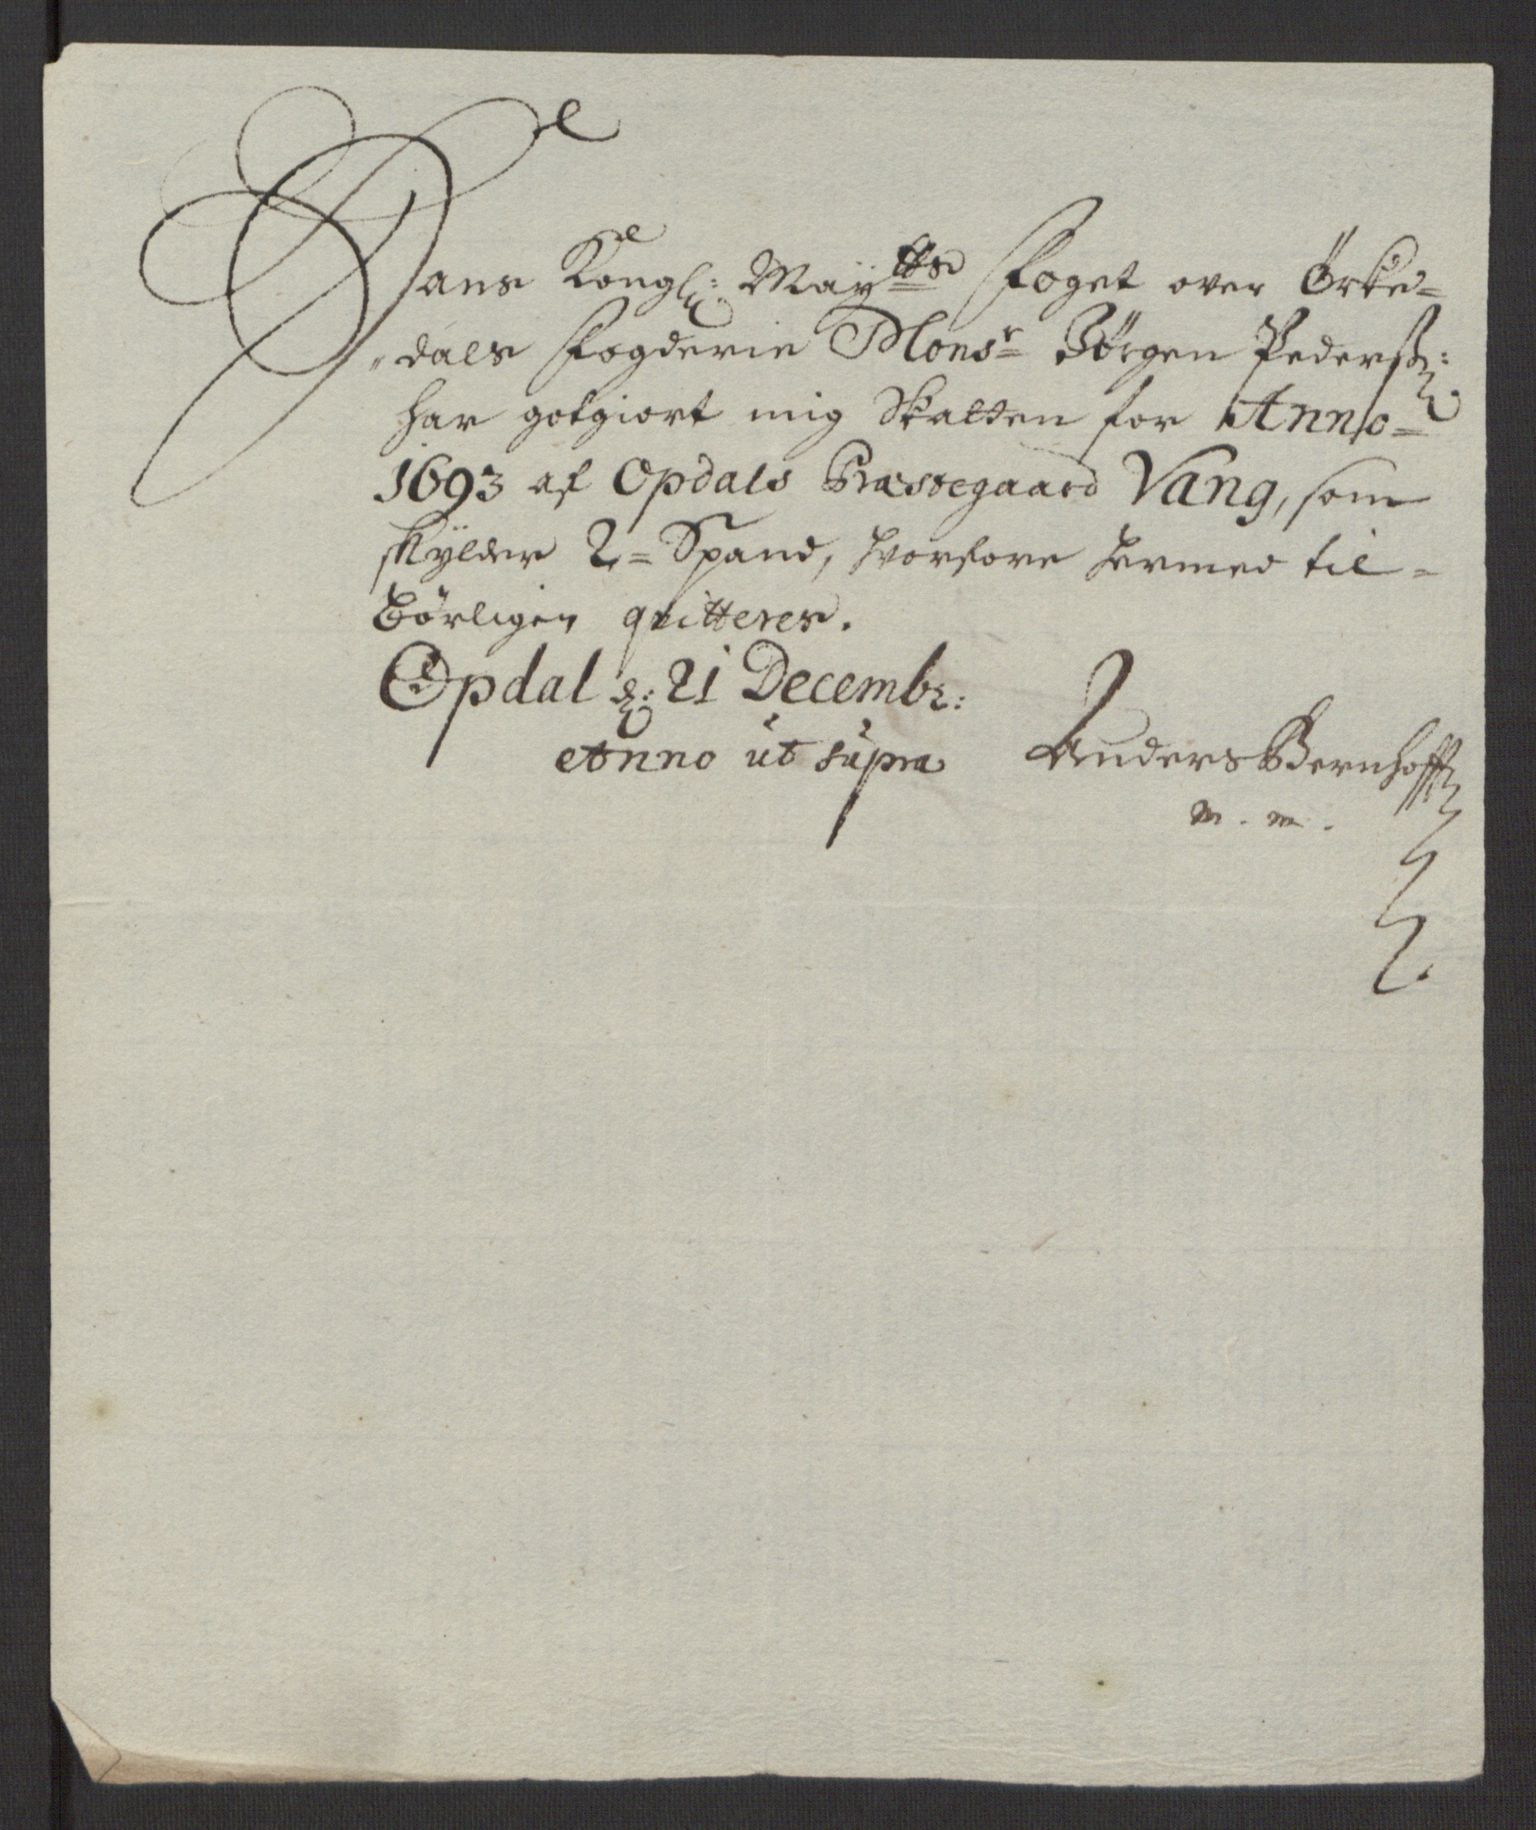 Hans Kongl: Maÿtts Foget over Ørke=
dals Fogderie Monsr Jørgen Pederß:
har gotgiort mig Skatten for Anno=
1693 af Opdals Præstegaard Vang, som
skÿlder 2= Spand, hvorfore hermed til=
børligen qvitteres.
Opdal d: 21 Decembr:
Anno ut supra Anders Bernhoff
m. m.